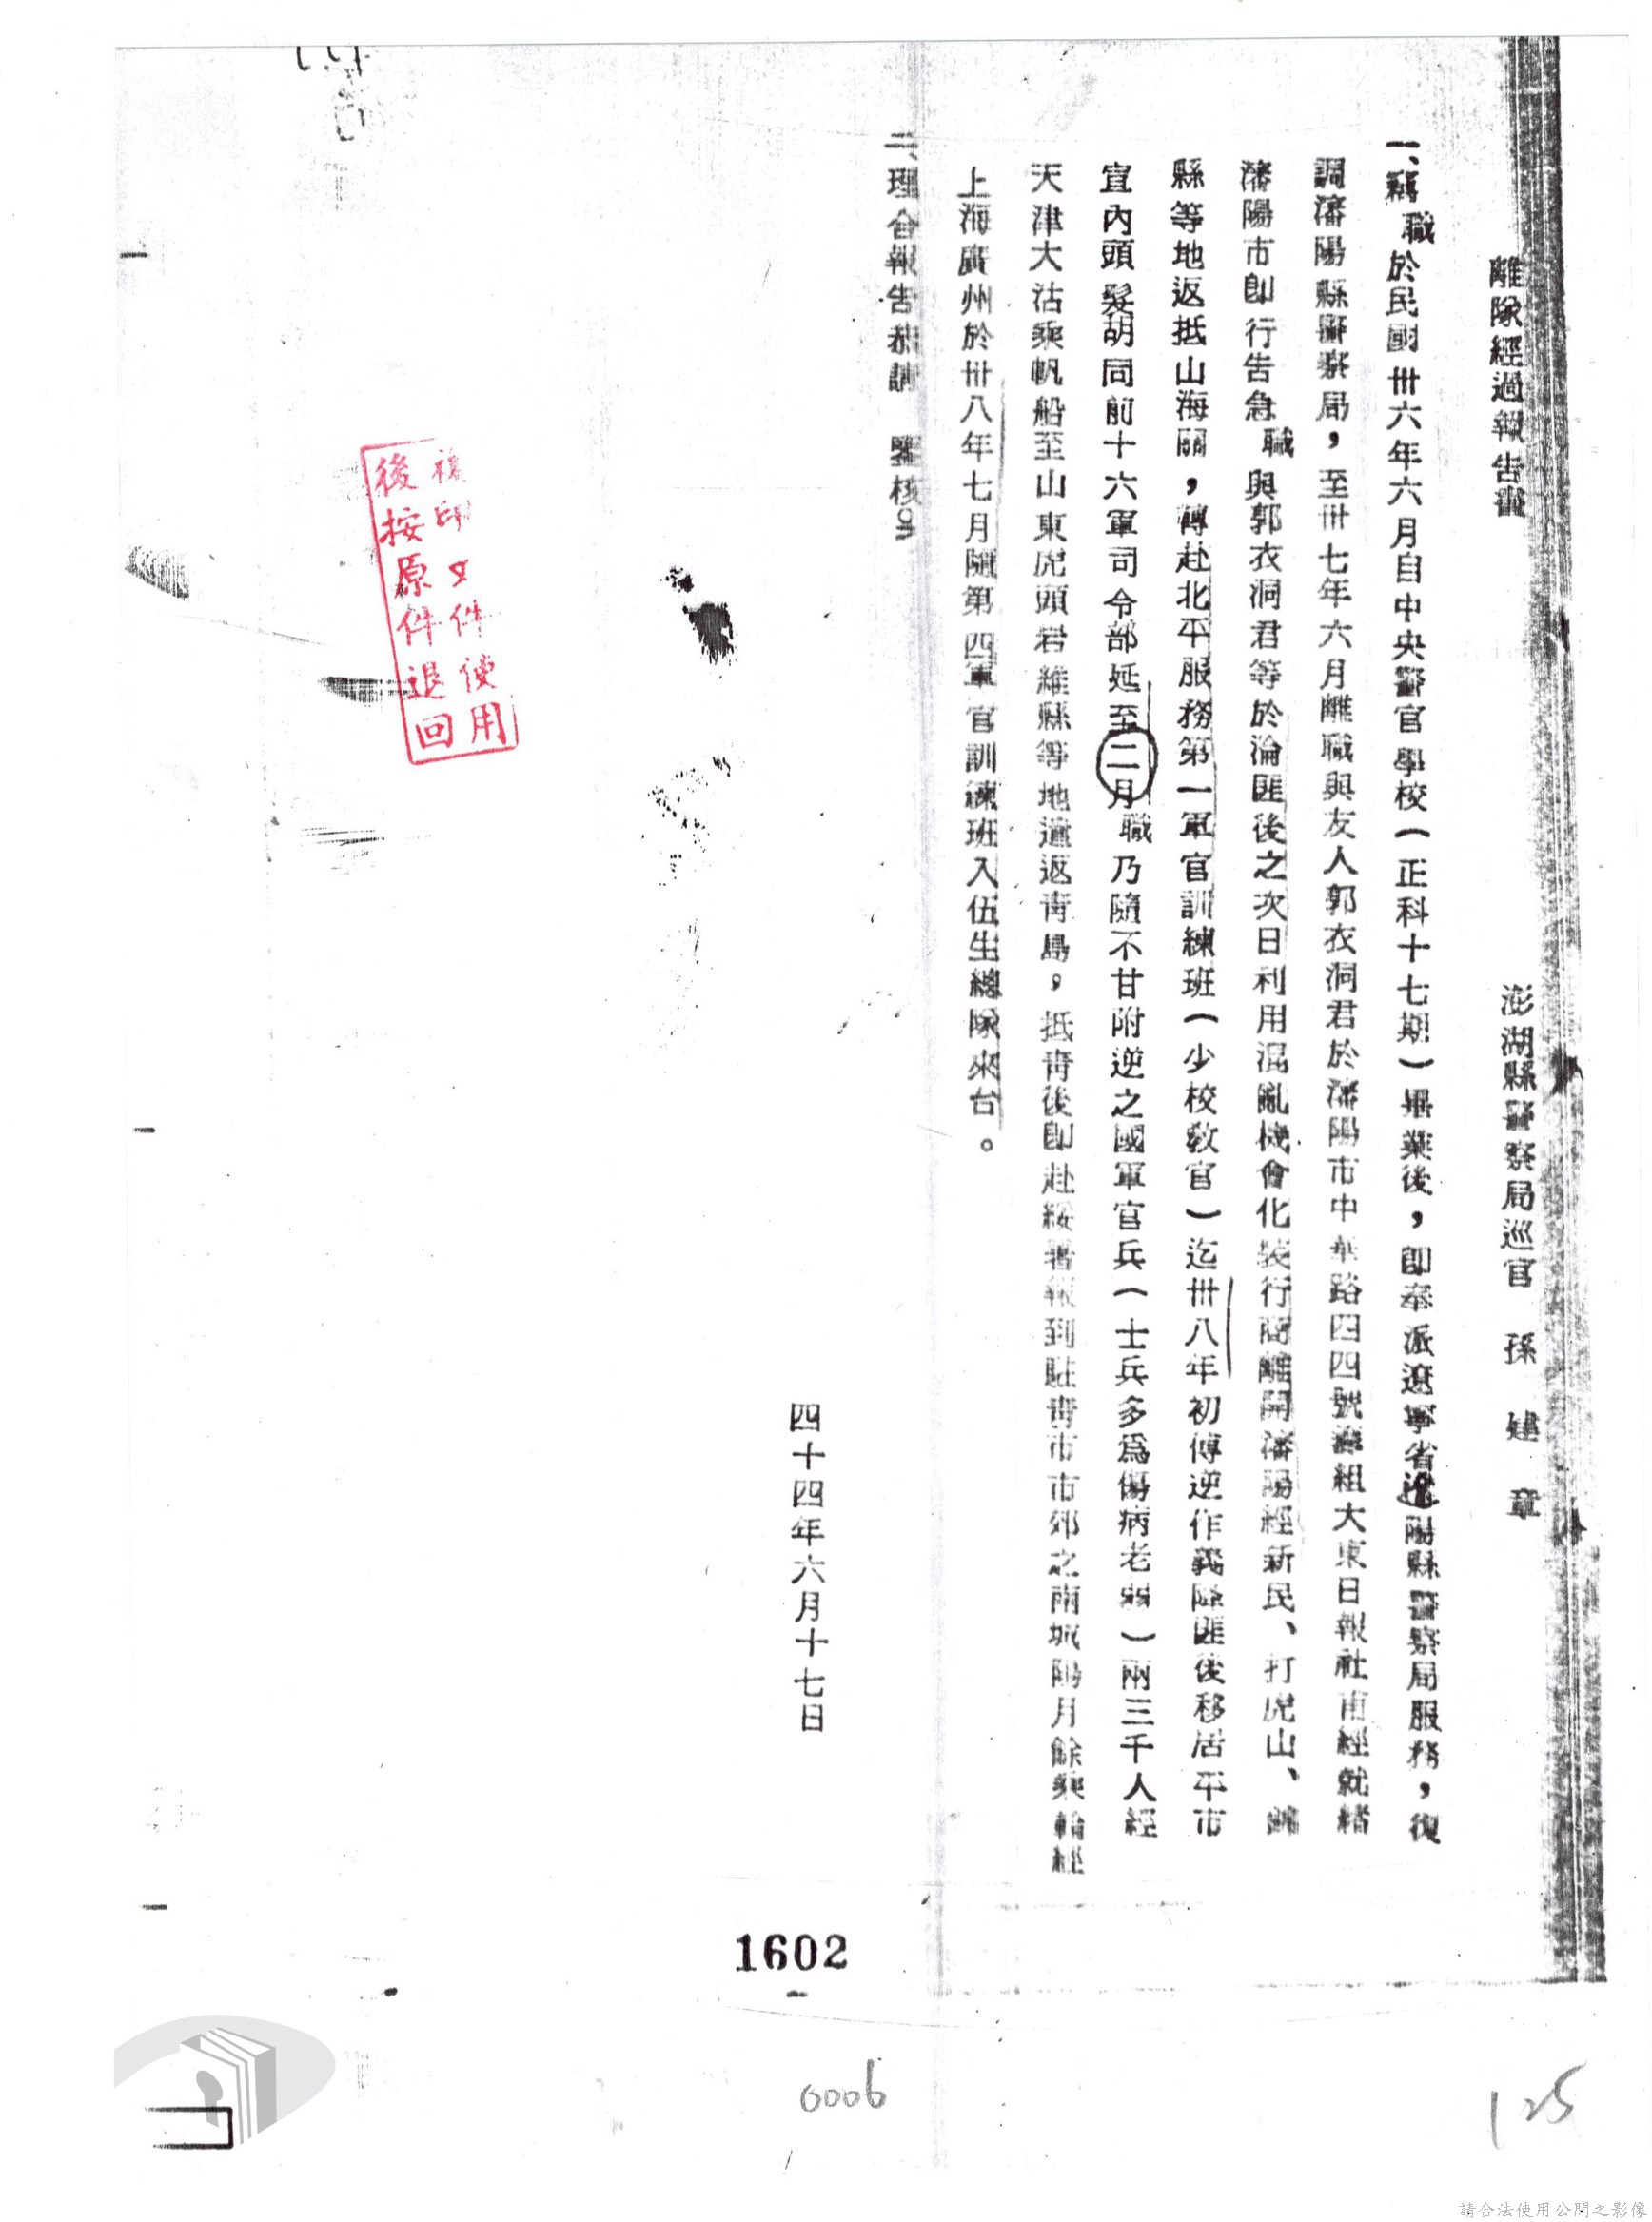 離隊經過報告書
澎湖縣警察局巡官　孫　建　章
一、竊　職於民國卅六年六月自中央警官學校（正科十七期）畢業後，卽奉派遼寧省遼陽縣警察局服務，復
調瀋陽縣警察局，至卅七年六月離職與友人郭衣洞君於瀋陽市中華路四四號籌組大東日報社甫經就緒
瀋陽市卽行告急　職與郭衣洞君等於淪匪後之次日利用混亂機會化裝行商離開瀋陽經新民、打虎山、錦
縣等地返抵山海關，轉赴北平服務第一軍官訓練班（少校教官）迄卅八年初傅逆作義降匪後移居平市
宣內頭髮胡同前十六軍司令部延至二月　職乃隨不甘附逆之國軍官兵（士兵多爲傷病老弱）兩三千人經
天津大沽乘帆船至山東虎頭岩維縣等地遄返靑島，抵靑後卽赴綏署報到駐靑市市郊之南城陽月餘乘輪經
上海廣州於卅八年七月隨第四軍官訓練班入伍生總隊來台。
二、理合報告恭請　鑒核。
四十四年六月十七日
複印文件使用
後按原件退回
1602
0006
125
請合法使用公開之影像